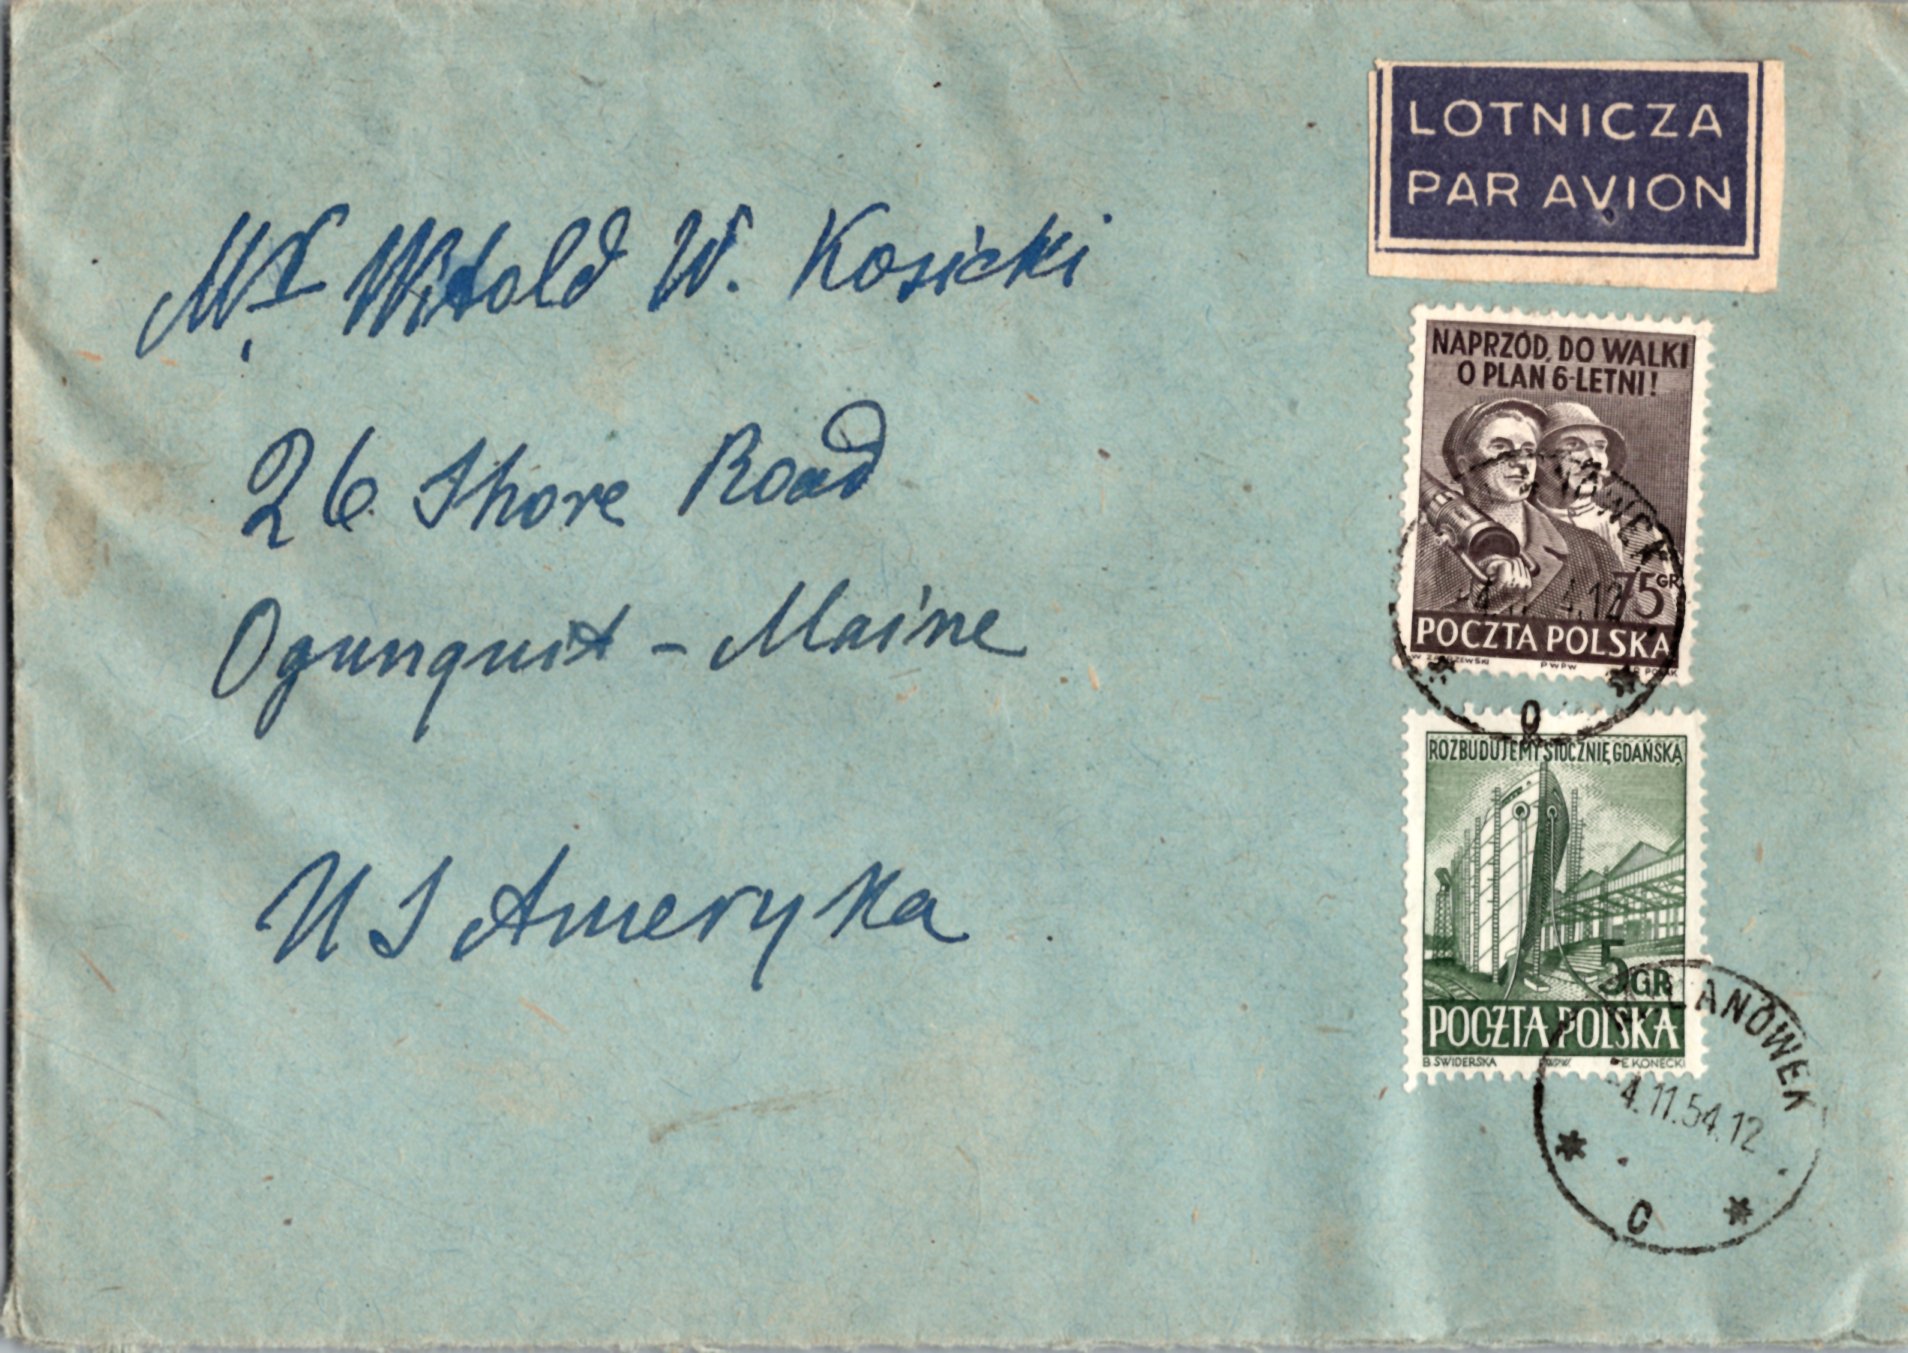 LOTNICZA
PAR AVION
Mr Witold W. Kosicki
26 Shore Road
Ogunquit - Maine
US Ameryka
NAPRZÓD, DO WALKI
O PLAN 6-LETNI!
75 GR
POCZTA POLSKA
PWPW
ROZBUDUJEMY STOCZNIĘ GDAŃSKĄ
5 GR
POCZTA POLSKA
B. SWIDERSKA PWPW. E. KONECKI
-4.11.54.12